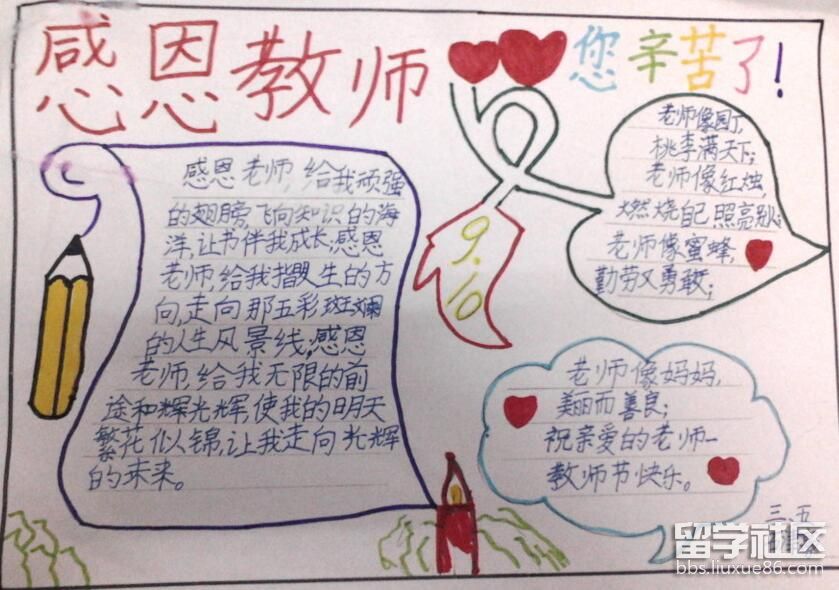 感恩教师
您辛苦了!
感恩老师,给我顽强
的翅膀,飞向知识的海
洋,让书伴我成长;感恩
老师,给我指引人生的方
向,走向那五彩斑斓
的人生风景线;感恩
老师,给我无限的前
途和辉光辉,使我的明天
繁花似锦,让我走向光辉
的未来。
9.10
老师像园丁,
桃李满天下;
老师像红烛,
燃烧自己照亮别人;
老师像蜜蜂,
勤劳又勇敢;
老师像妈妈,
美丽而善良;
祝亲爱的老师—
教师节快乐。
三.五
留学社区
bbs.liuxue86.com